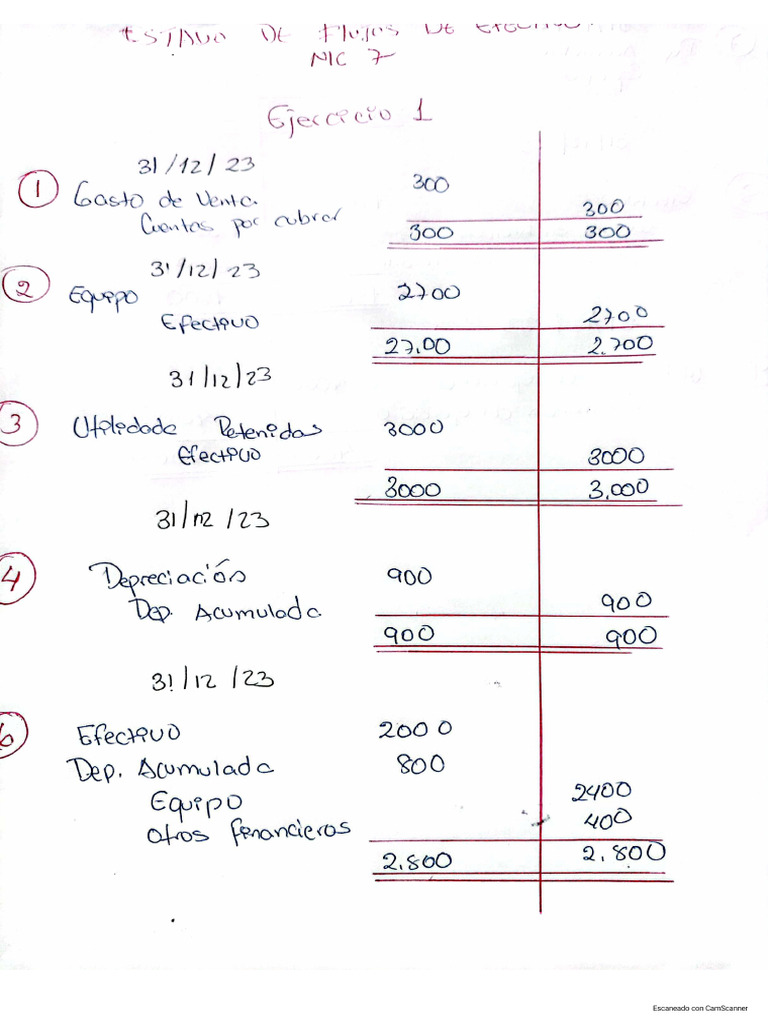 ESTADO DE FLUJOS DE EFECTIVO
NIC 7
Ejercicio 1
31/12/23
1 Gasto de Venta. 300
Cuentas por cobrar 300
300 300
31/12/23
2 Equipo 2700
Efectivo 2700
27.00 2.700
31/12/23
3 Utilidade Retenidas 3000
Efectivo 3000
3000 3.000
31/12/23
4 Depreciación 900
Dep. Acumulada 900
900 900
31/12/23
6 Efectivo 2000
Dep. Acumulada 800
Equipo 2400
otros financieros 400
2.800 2.800
Escaneado con CamScanner